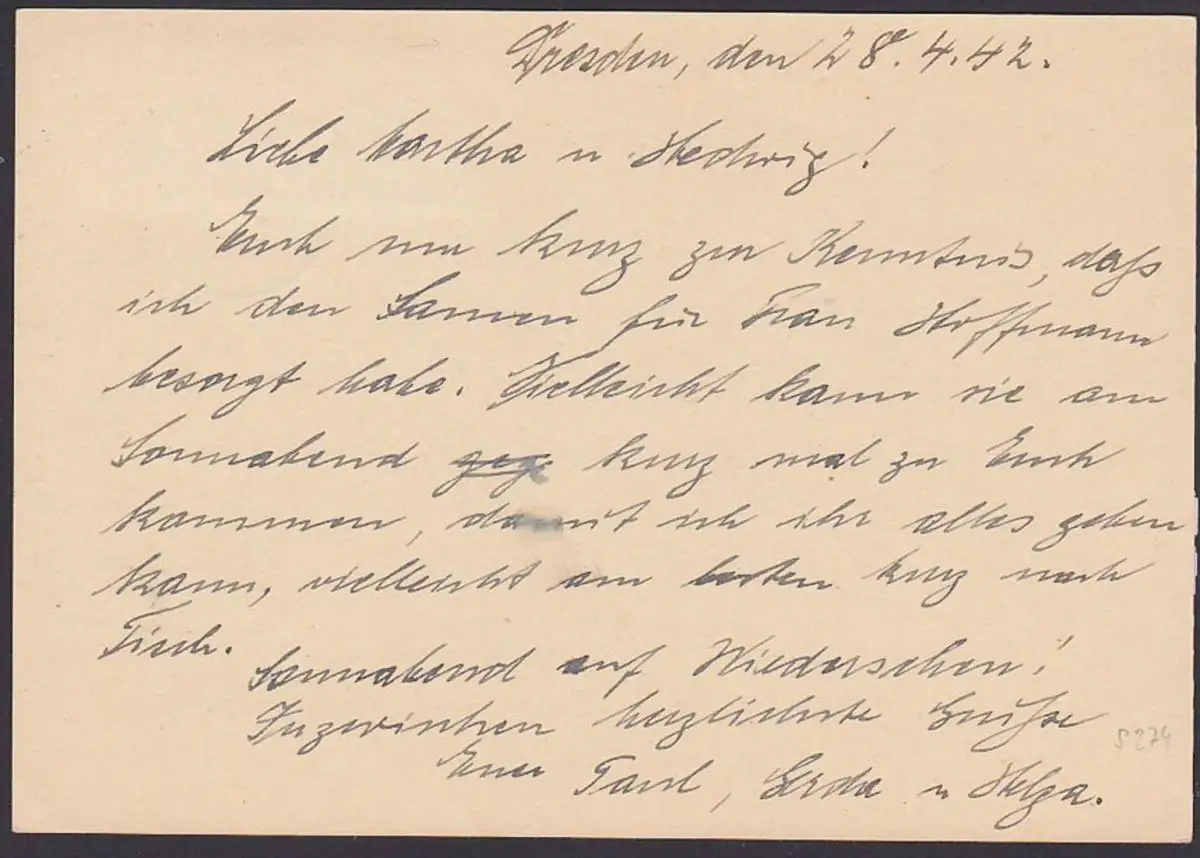 Dresden, den 28.4.42.
Liebe Martha u. Hedwig!
Euch nur kurz zur Kenntnis, daß
ich den Samen für Frau Hoffmann
besorgt habe. Vielleicht kann sie am
Sonnabend geg kurz mal zu Euch
kommen, damit ich ihr alles geben
kann, vielleicht am besten kurz nach
Tisch.
Sonnabend auf Wiedersehen!
Inzwischen herzlichste Grüße
Euer Paul, Gerda u Helga.
S 274